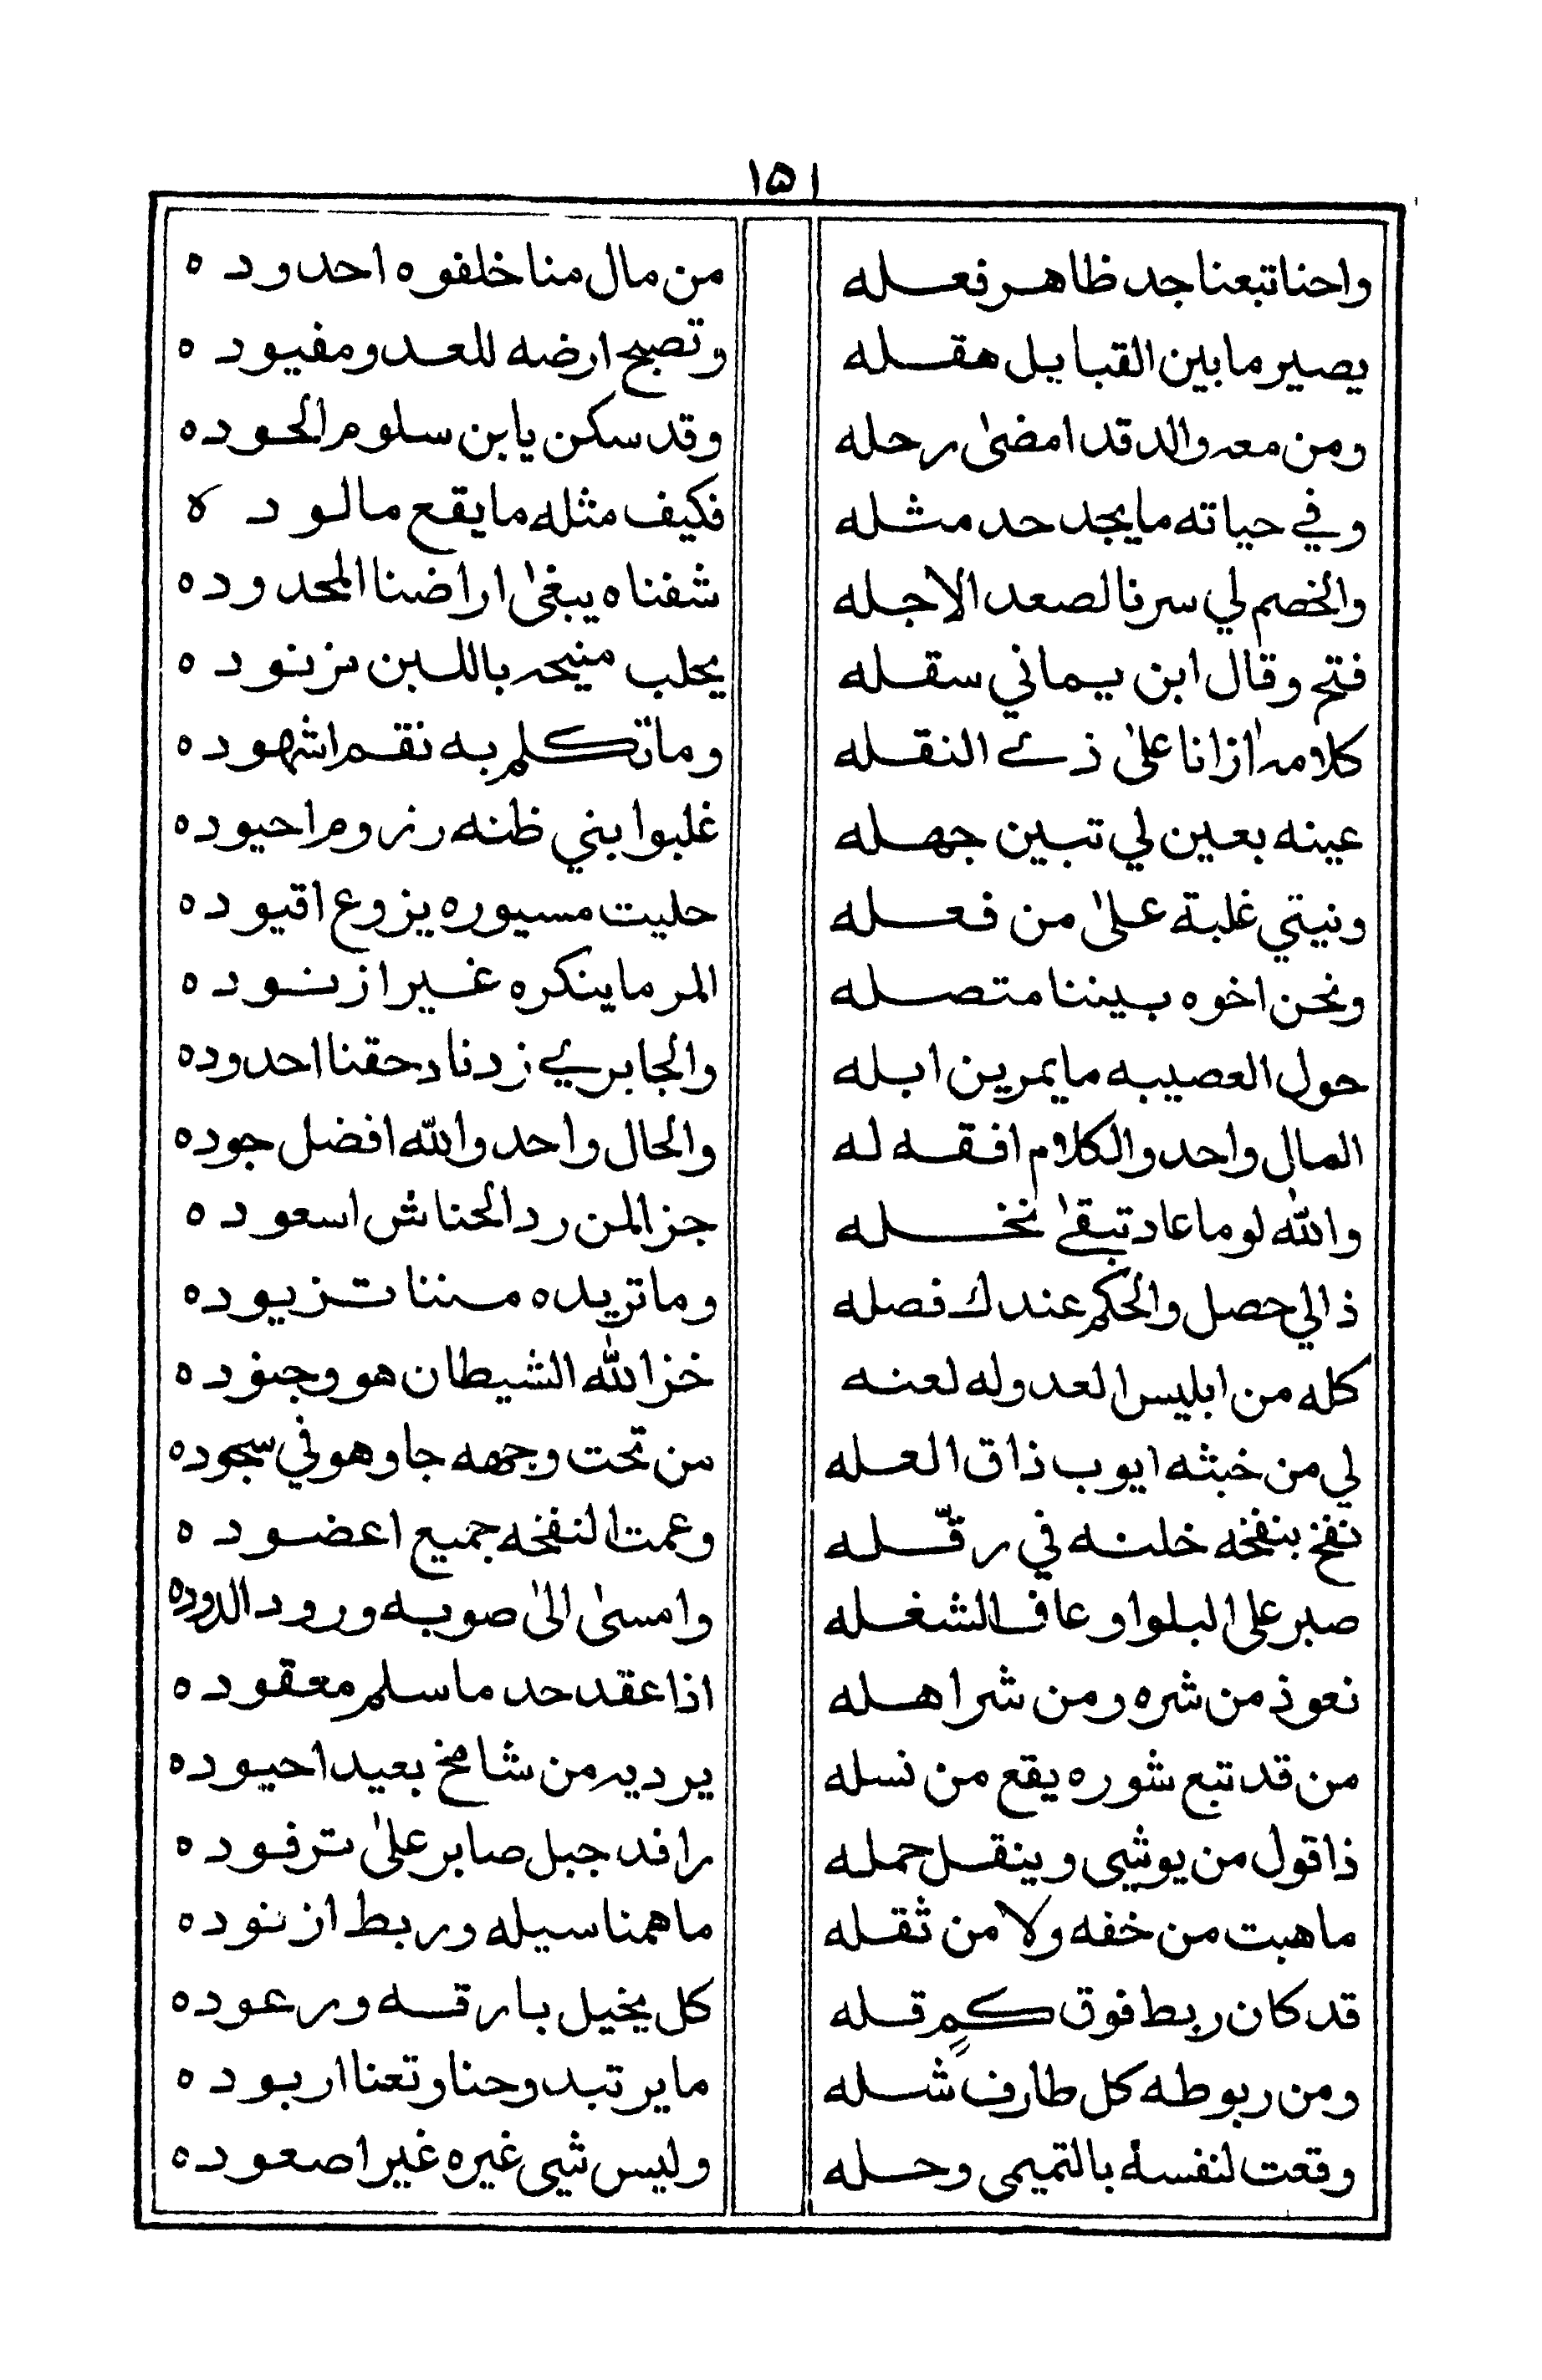 ١٥١
واحنا تبعنا جد ظاهر فعله من مال منا خلفوه احدوده
يصير ما بين القبايل هقله وتصبح ارضه للعدو مفيوده
ومن معه والد قد امضىٰ رحله وقد سكن يا بن سلوم الحوده
وفي حياته ما يجد حد مثله فكيف مثله ما يقع مالوده
والخصم لي سرنا لصعد الاجله شفناه يبغىٰ اراضنا المحدوده
فتح وقال ابن يماني سقله يحلب منيحه باللبن مزنوده
كلامه ازانا علىٰ ذي النقله وما تكلم به نقم اشهوده
عينه بعين لي تبين جهله غلبوا بني ظنه رزوم احيوده
ونيتي غلبة علىٰ من فعله حليت مسيوره يزوع اقيوده
ونحن اخوه بيننا متصله المر ما ينكره غير ازنوده
حول العصيبه ما يمرين ابله والجابري زدنا دحقنا احدوده
المال واحد والكلام افقه له والحال واحد والله افضل جوده
والله لو ما عاد تبقىٰ نخله جز المن رد الحناش اسعوده
ذا لي حصل والحكم عندك فصله وما تريده مننا تزيوده
كله من ابليس العدو له لعنه خز الله الشيطان هو وجنوده
لي من خبثه ايوب ذاق العله من تحت وجهه جا وهو في سجوده
نفخ بنفخه خلنه في رقّله وعمت النفخه جميع اعضوده
صبر على البلوا وعاف الشغله وامسىٰ الىٰ صوبه ورود الدوده
نعوذ من شره ومن شر اهله اذا عقد حد ما سلم معقوده
من قد تبع شوره يقع من نسله يرديه من شامخ بعيد احيوده
ذا قول من يوشي وينقل حمله رافد جبل صابر علىٰ ترفوده
ما هبت من خفه ولا من ثقله ما همنا سيله وربط ازنوده
قد كان ربط فوق كمٍ قله كل يخيل بارقه ورعوده
ومن ربوطه كل طارف شله ما ير تبد وحنا وتعنا اربوده
وقعت لنفسهٔ بالتميمي وحله وليس شيي غيره غير اصعوده